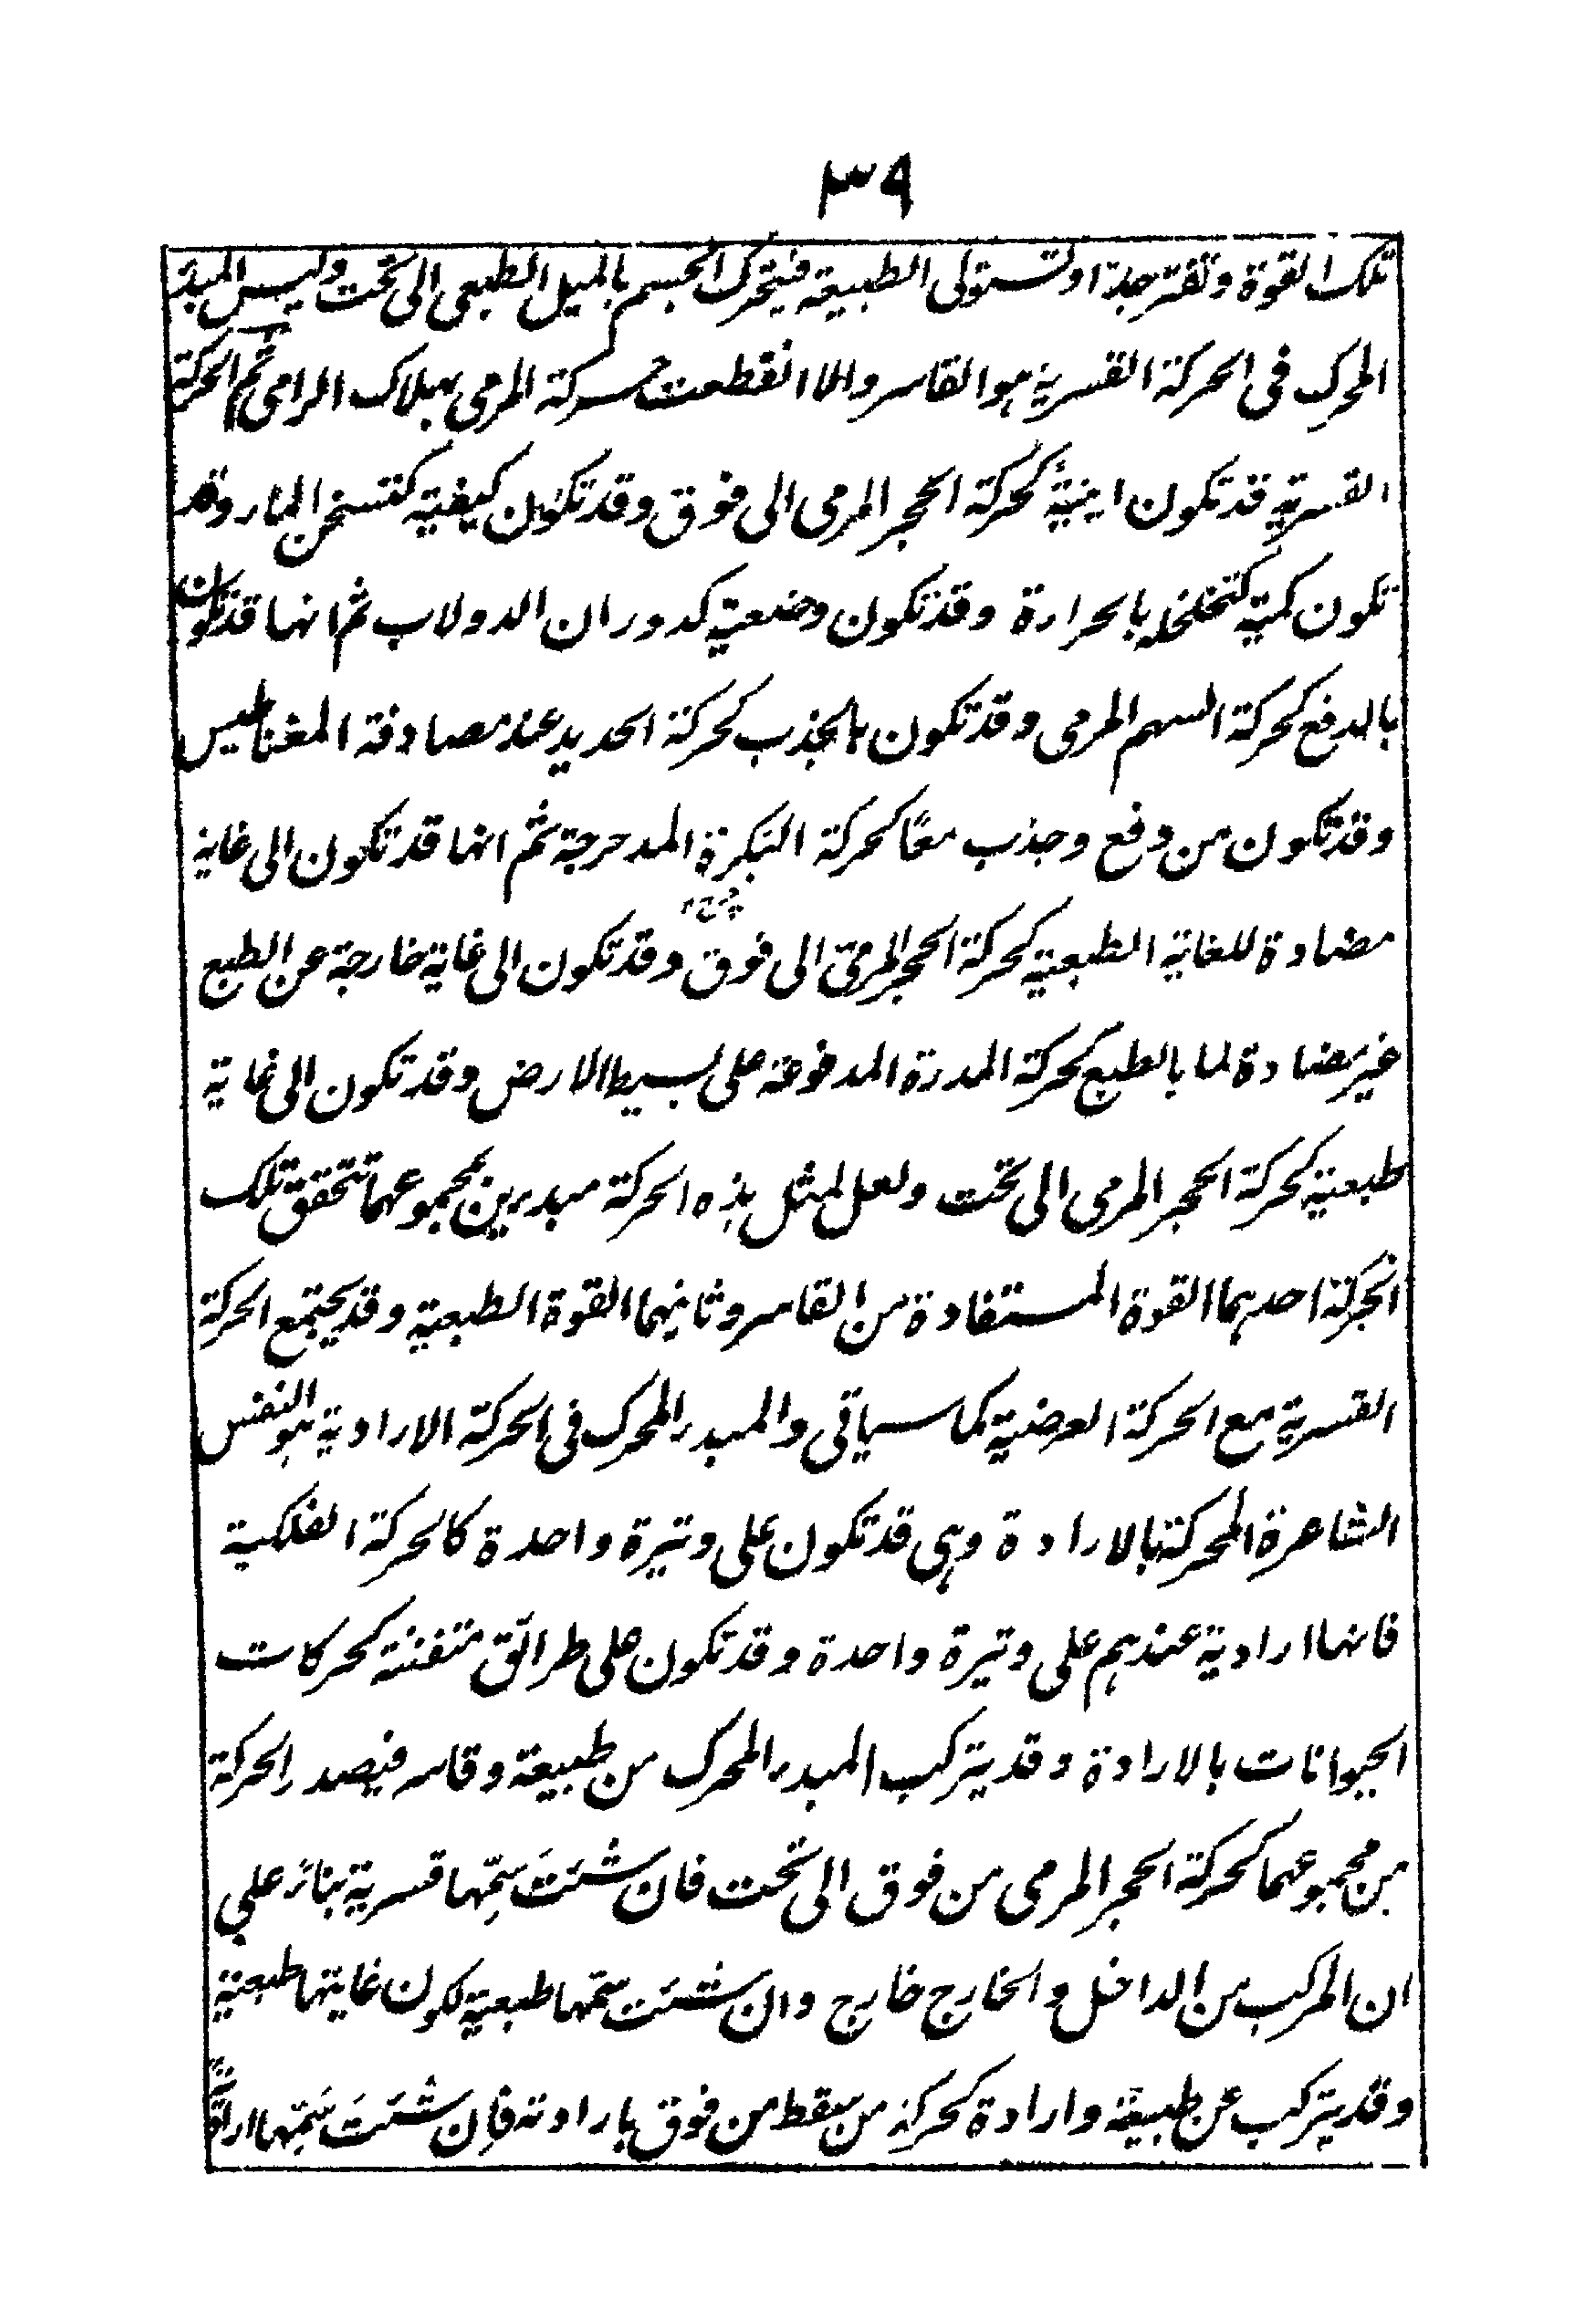 ٣٩
تلك القوة وتفتر جدا وتستولى الطبيعة فيتحرك الجسم بالميل الطبعى الى تحت وليس المبدء
المحرك فى الحركة القسرية هو القاسر والا انقطعت حركة المرمى بهلاك الرامى ثم الحركة
القسرية قد تكون اينية كحركة الحجر المرمى الى فوق وقد تكون كيفية كتسخن الماء وقد
تكون كمية كتخلخله بالحرارة وقد تكون وضعية كدوران الدولاب ثم انها قد تكون
بالدفع كحركة السهم المرمى وقد تكون بالجذب كحركة الحديد عند مصادفة المغناطيس
وقد تكون من دفع وجذب معًا كحركة البكرة المدحرجة ثم انها قد تكون الى غاية
مضادة للغاية الطبعية كحركة الحجر المرمى الى فوق وقد تكون الى غاية خارجة عن الطبع
غير مضادة لما بالطبع كحركة المدرة المدفوعة على بسيط الارض وقد تكون الى غاية
طبعية كحركة الحجر المرمى الى تحت ولعل لمثل هذه الحركة مبدءين بمجموعهما تتحقق تلك
الحركة احدهما القوة المستفادة من القاسر وثانيهما القوة الطبعية وقد يجتمع الحركة
القسرية مع الحركة العرضية كما سياتى والمبدء المحرك فى الحركة الارادية هو النفس
الشاعرة المحركة بالارادة وهى قد تكون على وتيرة واحدة كالحركة الفلكية
فانها ارادية عندهم على وتيرة واحدة وقد تكون على طرائق متفننة كحركات
الحيوانات بالارادة وقد يتركب المبدء المحرك من طبيعة وقاسر فيصدر الحركة
من مجموعهما كحركة الحجر المرمى من فوق الى تحت فان شئت سمّها قسرية بناء على
ان المركب من الداخل والخارج خارج وان شئت سمّها طبعية لكون غايتها طبعية
وقد يتركب عن طبيعة وارادة كحركة من سقط من فوق بارادته فان شئت سمّها ارادية